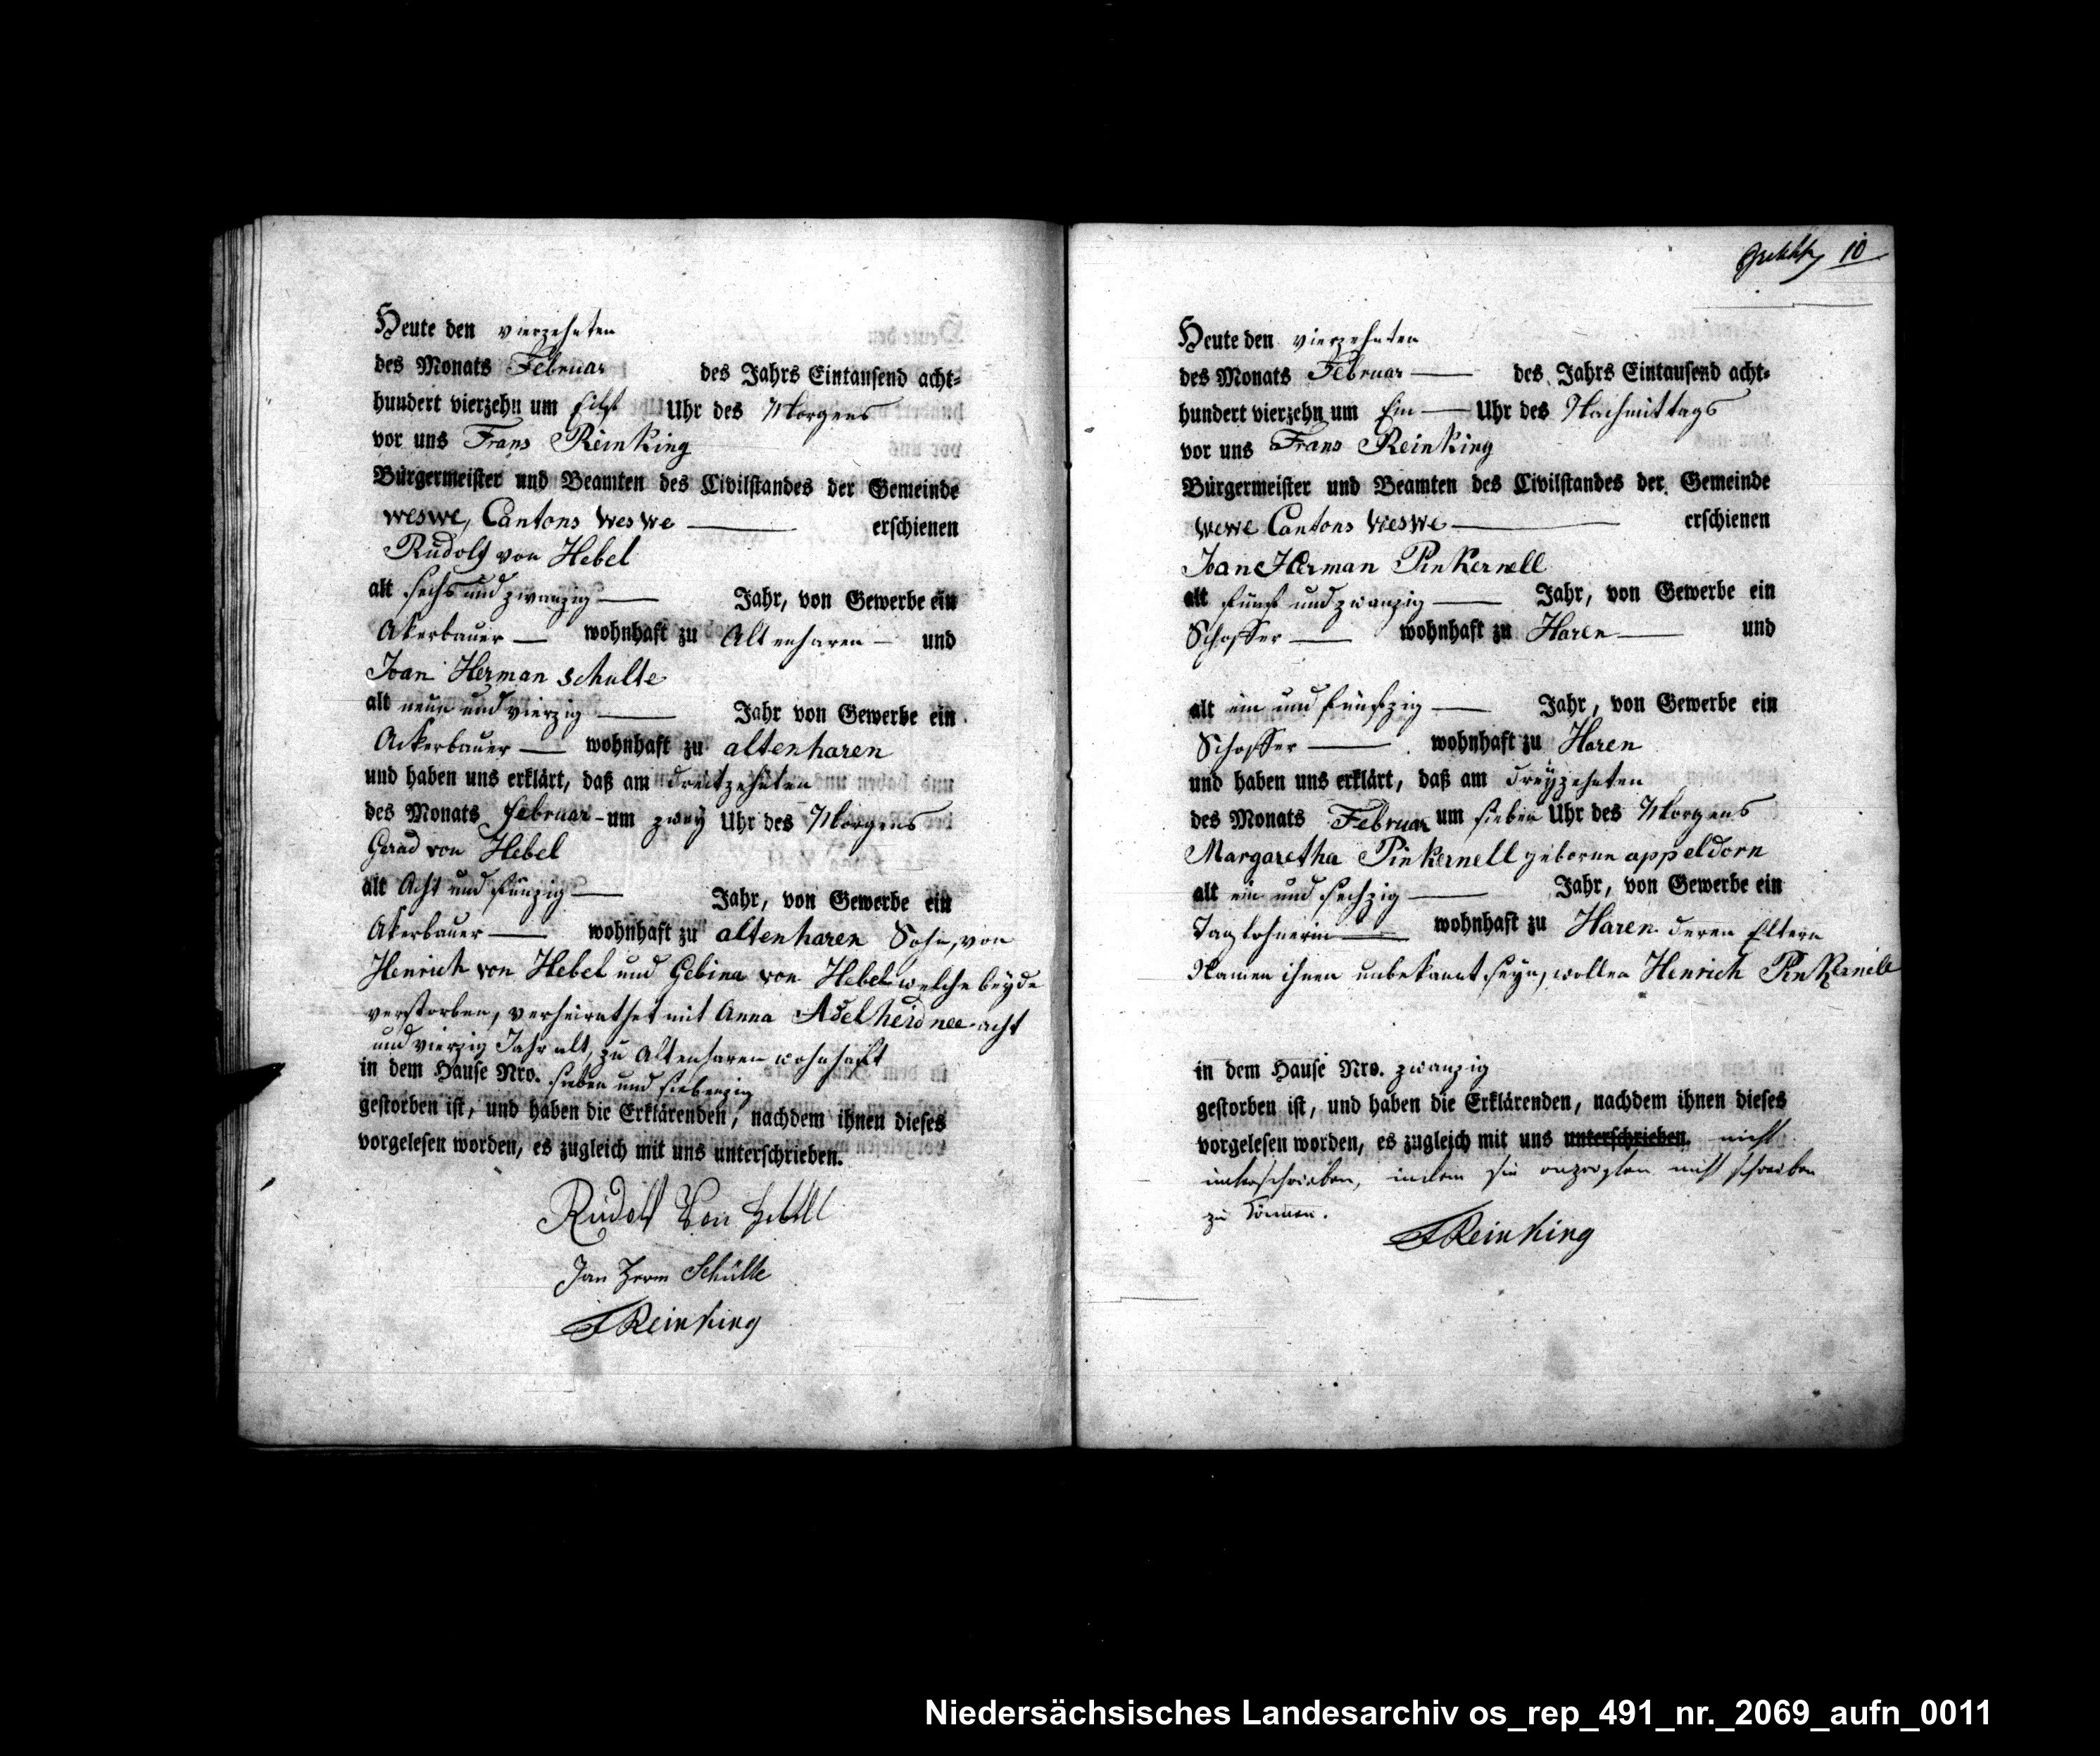 Heute den vierzehnten
des Monats Februar des Jahrs Eintausend acht-
hundert vierzehn um Eilf Uhr des Morgens
vor uns Frans Reinking
Bürgermeister und Beamten des Civilstandes der Gemeinde
weswe, Cantons Weswe erschienen
Rudolf von Hebel
alt sechs und zwanzig Jahr, von Gewerbe ein
Akerbauer wohnhaft zu Altenharen und
Joan Herman Schulte
alt neun und vierzig Jahr von Gewerbe ein
Ackerbauer wohnhaft zu altenharen
und haben uns erklärt, daß am dreitzehnten
des Monats februar um zwey Uhr des Morgens
Gerad von Hebel
alt Acht und funzig Jahr, von Gewerbe ein
Akerbauer wohnhaft zu altenharen Sohn, von
Henrich von Hebel und Gebina von Hebel welche beyde
verstorben, verheirathet mit Anna Adelheid nee acht
und vierzig Jahr alt, zu Altenharen wohnhaft
in dem Hause Nro. sieben und siebenzig
gestorben ist, und haben die Erklärenden, nachdem ihnen dieses
vorgelesen worden, es zugleich mit uns unterschrieben.
Rudolf Von Hebell
Jan Herm Schülte
FReinking
10
Heute den vierzehnten
des Monats Februar des Jahrs Eintausend acht-
hundert vierzehn um Ein Uhr des Nachmittags
vor uns Frans Reinking
Bürgermeister und Beamten des Civilstandes der Gemeinde
Wewe Cantons Weswe erschienen
Joan Herman Pinkernell
alt fünf und zwanzig Jahr, von Gewerbe ein
Schosser wohnhaft zu Haren und
alt ein und fünfzig Jahr, von Gewerbe ein
Schosser wohnhaft zu Haren
und haben uns erklärt, daß am dreyzehnten
des Monats Februar um sieben Uhr des Morgens
Margaretha Pinkernell geborne appeldorn
alt ein und sechzig Jahr, von Gewerbe ein
Taglohnerin wohnhaft zu Haren deren Eltern
Namen ihnen unbekannt seyn, wollen Henrich Pinkernell
in dem Hause Nro. zwanzig
gestorben ist, und haben die Erklärenden, nachdem ihnen dieses
vorgelesen worden, es zugleich mit uns unterschrieben. nicht
unterschrieben, indem sie anzeigten nicht schreiben
zu können.
FReinking
Niedersächsisches Landesarchiv os_rep_491_nr._2069_aufn_0011